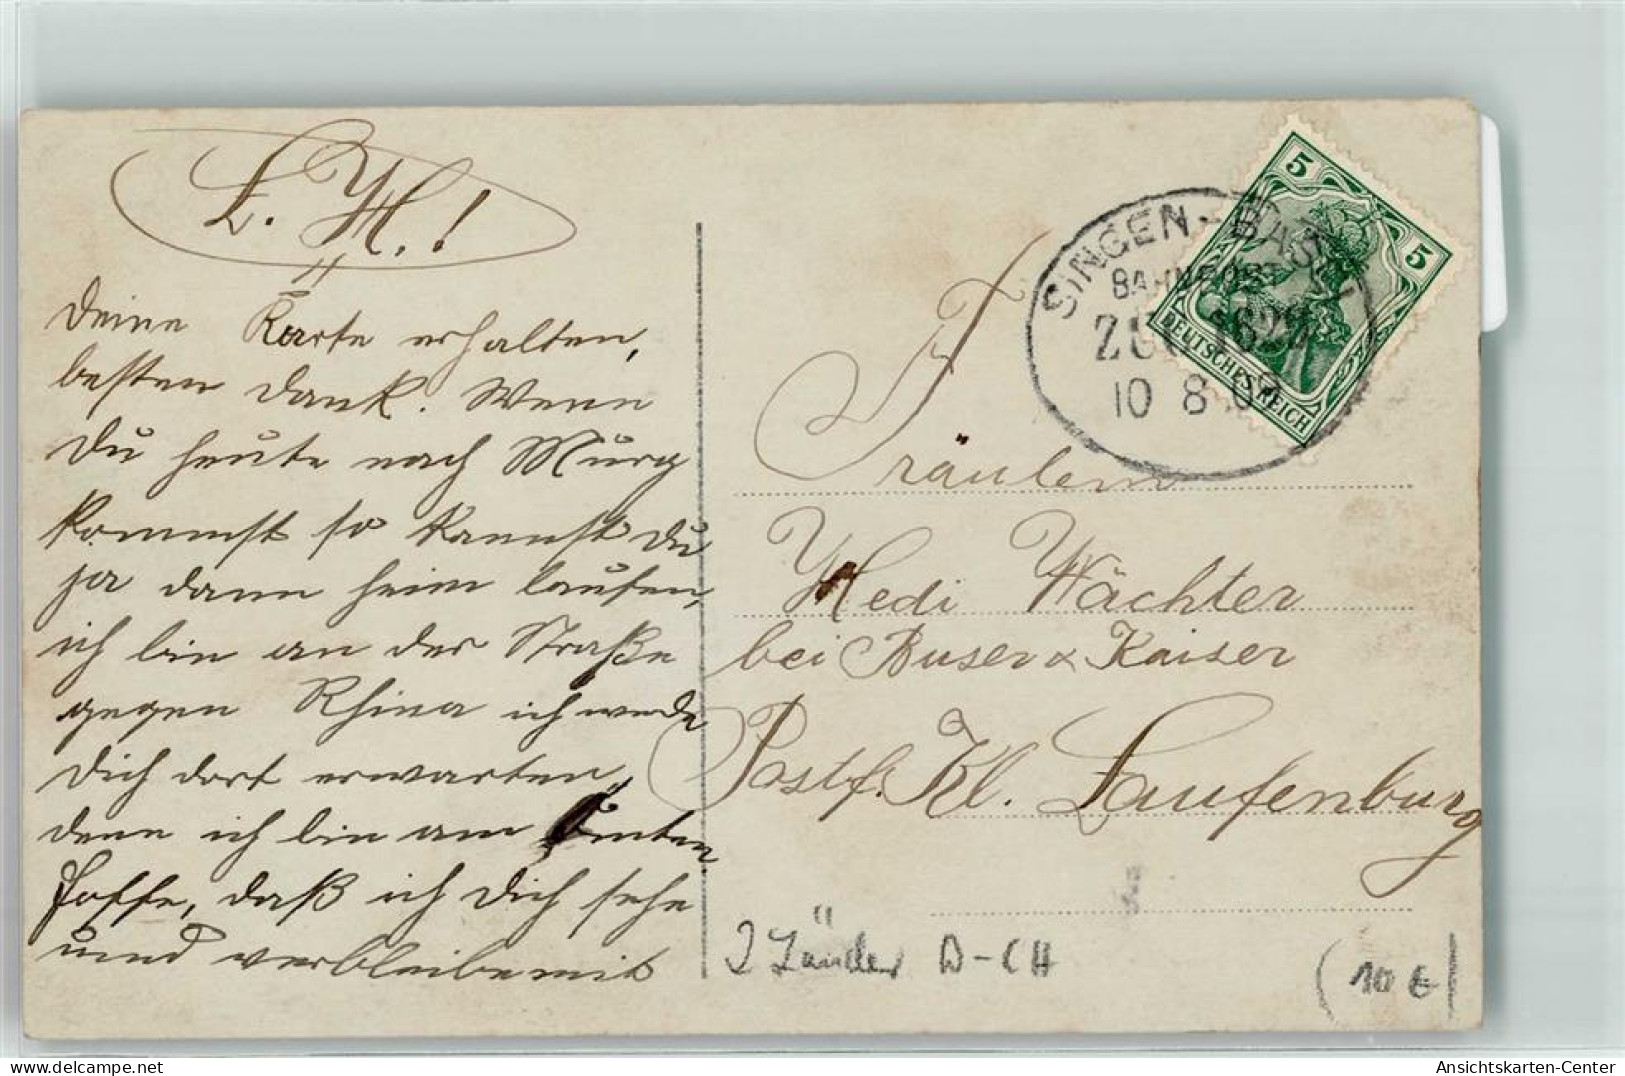 L. M.!
Deine Karte erhalten,
besten Dank. Wenn
Du heute nach Murg
kommst so kannst Du
ja dann heim laufen,
ich bin an der Straße
gegen Rhina ich werde
Dich dort erwarten,
denn ich bin am
hoffe, daß ich Dich sehe
und verbleibe mit
SINGEN-BASEL
BAHNPOST
ZUG
10 8
5
5
DEUTSCHES REICH
Fräulein
Medi Wächter
bei Buser & Kaiser
Postf. Kl. Laufenburg
2 Länder D-CH
(10 €)
Ansichtskarten-Center